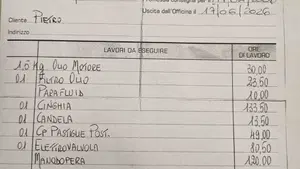 Uscita dall'Officina il 17/06/2026
Cliente PIETRO
Indirizzo
LAVORI DA ESEGUIRE ORE DI LAVORO
1.5 Kg OLIO MOTORE 30,00
01 FILTRO OLIO 23,50
PARAFLUID 10,00
01 CINGHIA 133,50
01 CANDELA 13,50
01 CP PASTIGLIE POST. 49,00
01 ELETTROVALVOLA 10,50
MANODOPERA 120,00